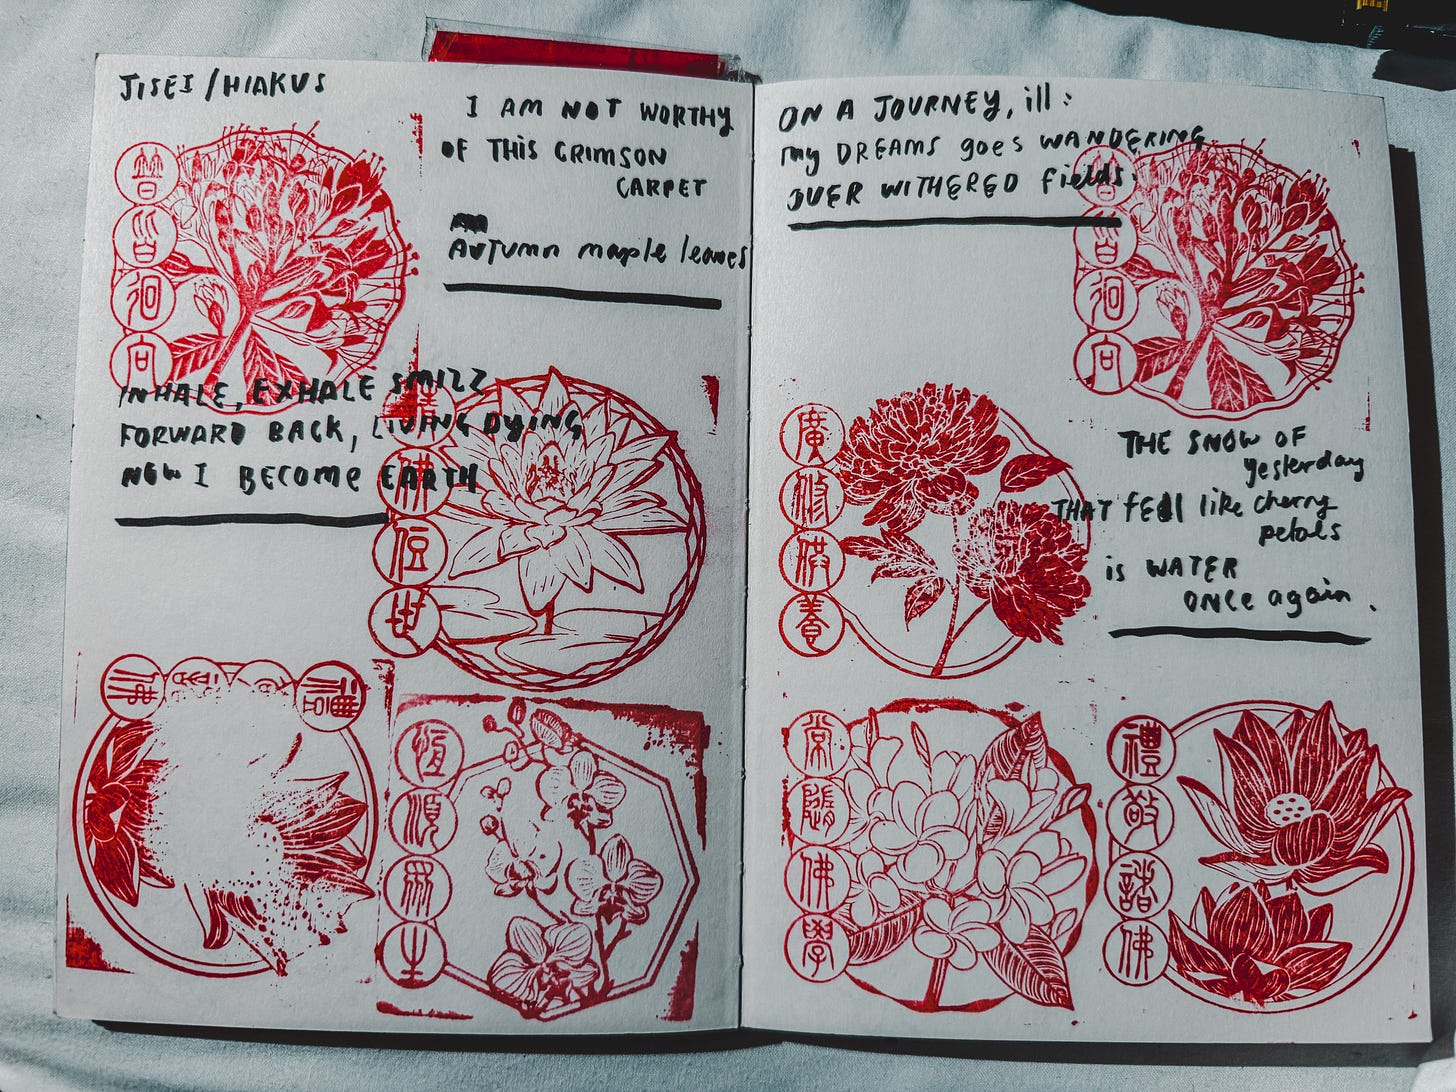 JISEI/HIAKUS
I AM NOT WORTHY
OF THIS CRIMSON
CARPET
AUTUMN maple leaves
普
皆
迴
向
INHALE, EXHALE SMIZZ
FORWARD BACK, LIVING DYING
NOW I BECOME EARTH
佛
住
世
恆
順
眾
生
ON A JOURNEY, ill:
my DREAMS goes WANDERING
OVER WITHERED fields.
普
皆
迴
向
THE SNOW OF
yesterday
THAT FEll like cherry
petals
is WATER
ONCE again.
廣
修
供
養
常
隨
佛
學
禮
敬
諸
佛